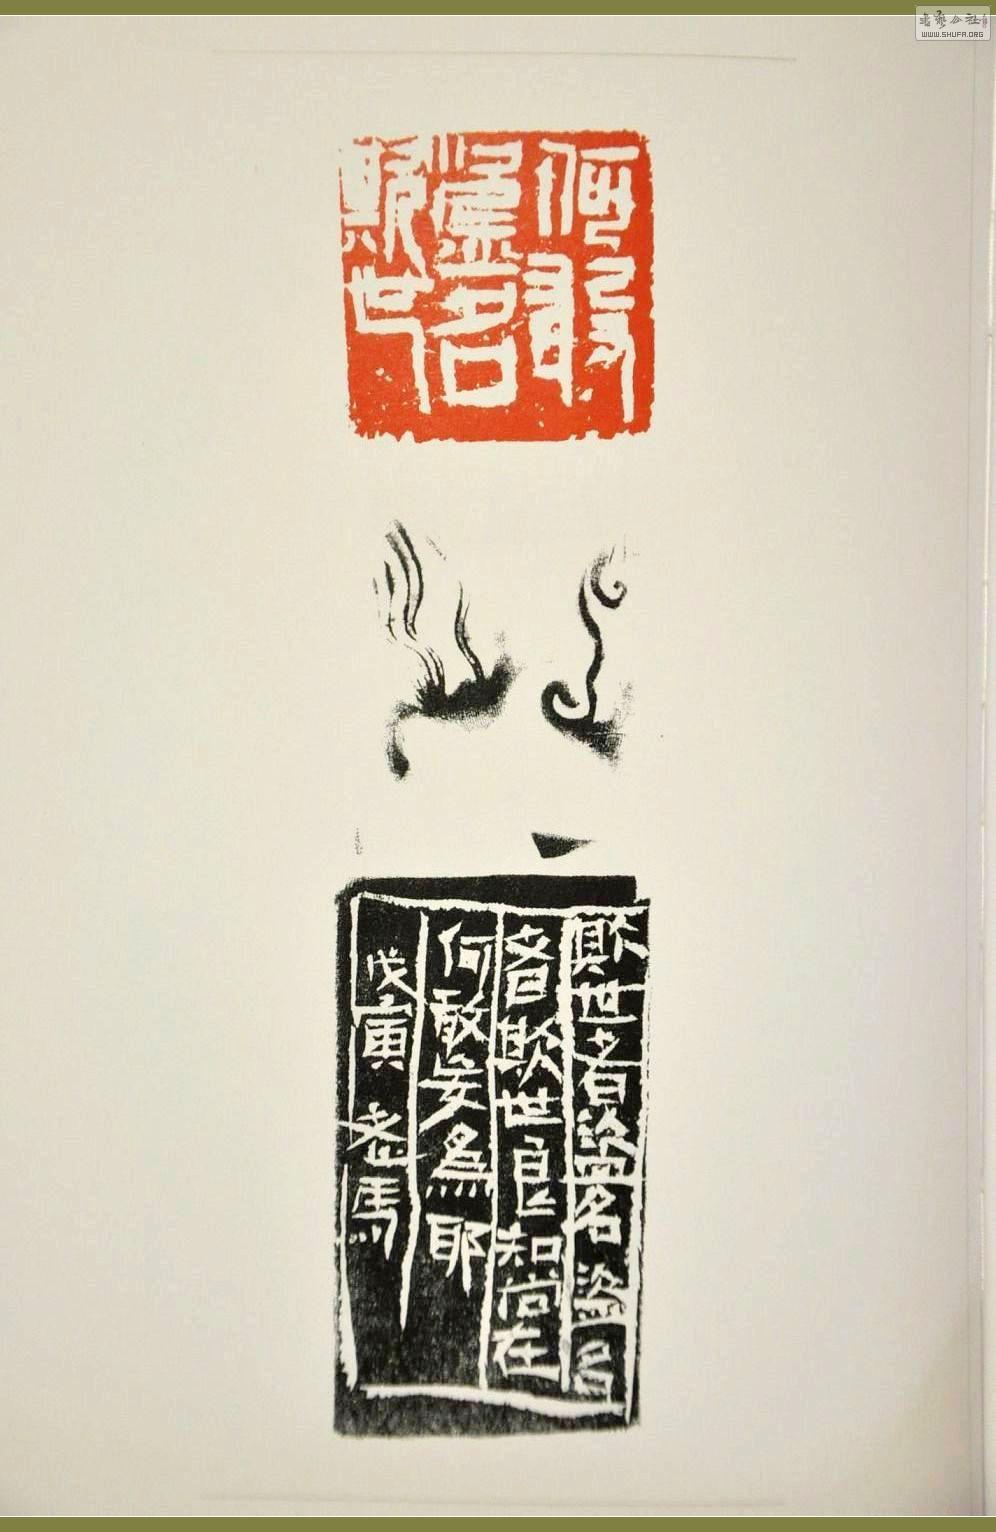 書藝公社
WWW.SHUFA.ORG
何敢
名
欺世
欺世者盗名盗名
者欺世良知尚在
何敢妄為耶
戊寅 老馬